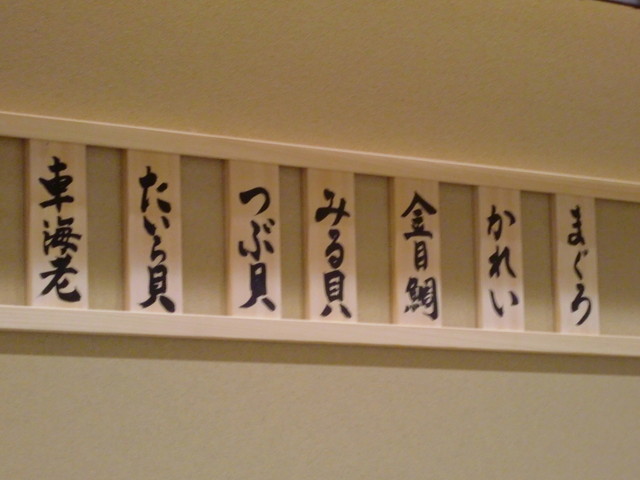 まぐろ
かれい
金目鯛
みる貝
つぶ貝
たいら貝
車海老